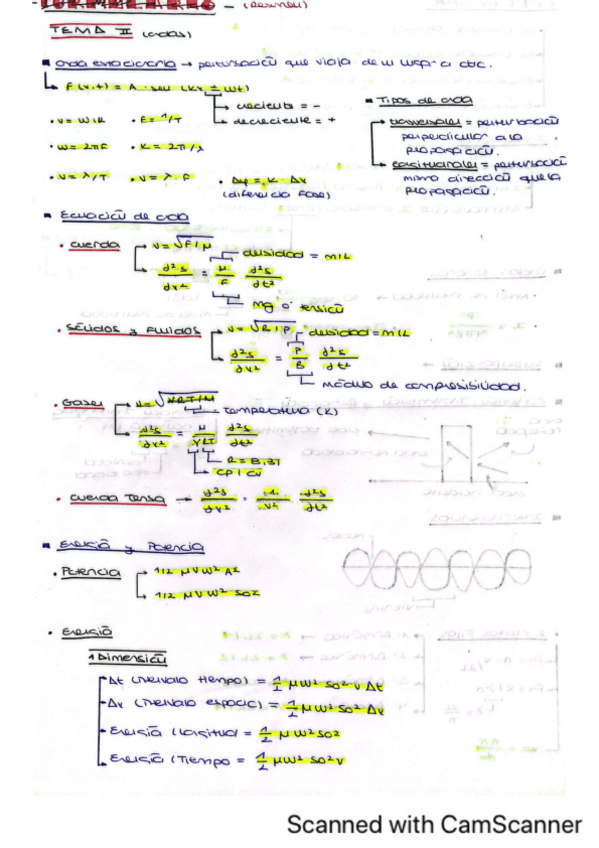 (Resumen)
TEMA II (ondas)
onda estacionaria → perturbación que viaja de un lugar a otro.
F(x,t) = A · sen (kx ± wt)
creciente = -
decreciente = +
• v = w/k • F = 1/T
• w = 2πF • k = 2π/λ
• v = λ/T • v = λ·F • Δφ = k · Δx
(diferencia fase)
Tipos de onda
transversales = perturbación
perpendicular a la
propagación.
longitudinales = perturbación
misma dirección que la
propagación.
Ecuación de onda
• cuerda v = √F/μ
densidad = m/L
d²s/dx² = μ/F d²s/dt²
Mg o tensión
• Sólidos y Fluidos v = √B/ρ
densidad = m/L
d²s/dx² = ρ/B d²s/dt²
Módulo de compresibilidad.
• Gases v = √γRT/M
temperatura (K)
d²s/dx² = M/γRT d²s/dt²
R = 8,31
CP/CV
• cuerda tensa → d²s/dx² = 1/v² · d²s/dt²
Energía y Potencia
• Potencia 1/2 μvw² A²
1/2 μvw² so²
• Energía
1 Dimensión
Δt (intervalo tiempo) = 1/2 μw² so² v Δt
Δx (intervalo espacio) = 1/2 μw² so² Δx
Energía / Longitud = 1/2 μw² so²
Energía / Tiempo = 1/2 μw² so² v
Scanned with CamScanner